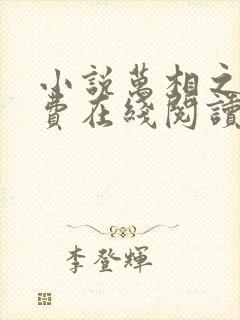 小說萬相之
費在綫閱讀
李登輝